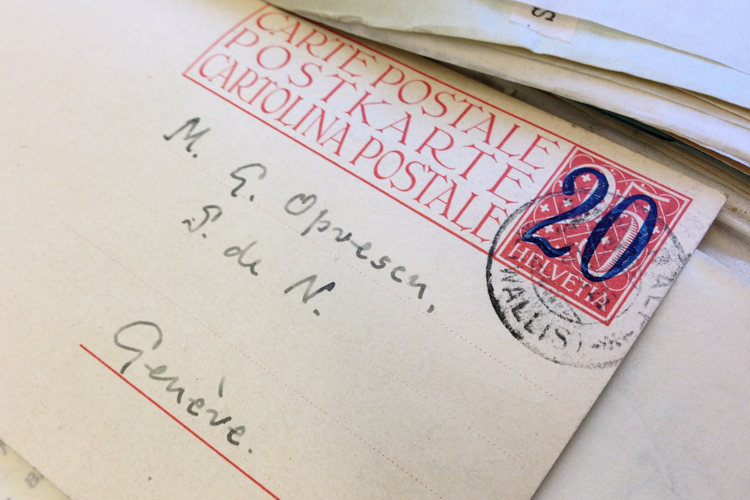 CARTE POSTALE
POSTKARTE
CARTOLINA POSTALE
20
HELVETIA
WALLIS
M. G. Oprescu,
S. de N.
Genève.
S